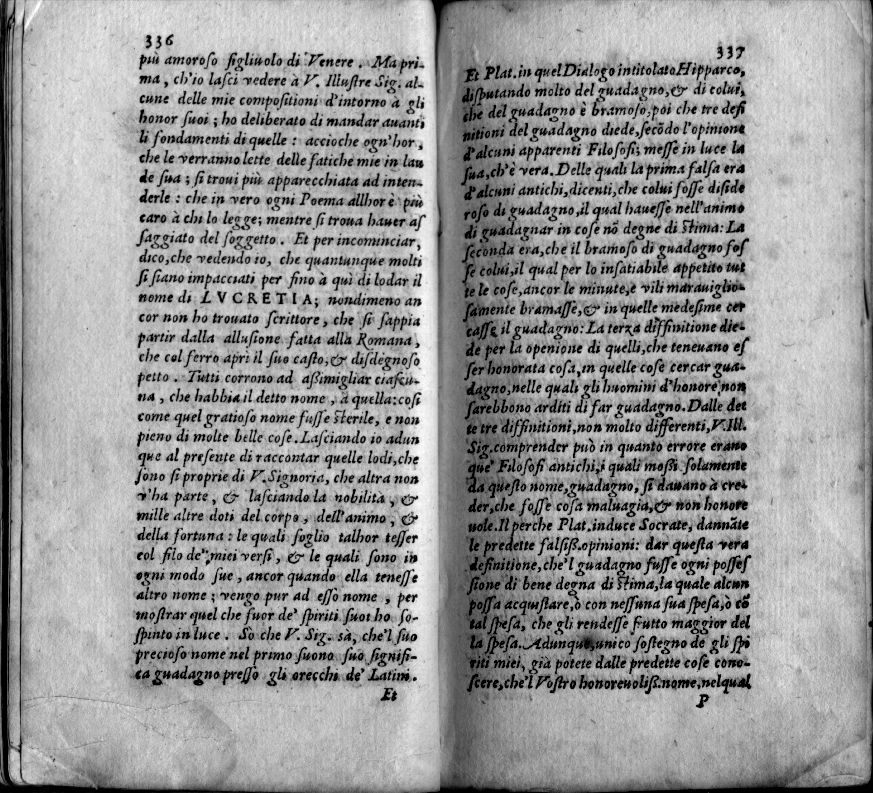 336
più amoroso figliuolo di Venere. Ma pri-
ma, ch'io lasci vedere à V. Illustre Sig. al-
cune delle mie compositioni d'intorno à gli
honor suoi; ho deliberato di mandar auanti
li fondamenti di quelle: accioche ogn'hor,
che le verranno lette delle fatiche mie in lau
de sua; si troui più apparecchiata ad inten-
derle: che in vero ogni Poema allhor è più
caro à chi lo legge; mentre si troua hauer as
saggiato del soggetto. Et per incominciar,
dico, che vedendo io, che quantunque molti
si siano impacciati per fino à quì di lodar il
nome di LVCRETIA; nondimeno an
cor non ho trouato scrittore, che si sappia
partir dalla allusione fatta alla Romana,
che col ferro aprì il suo casto, & disdegnoso
petto. Tutti corrono ad assimigliar ciascu-
na, che habbia il detto nome, à quella: così
come quel gratioso nome fusse sterile, e non
pieno di molte belle cose. Lasciando io adun
que al presente di raccontar quelle lodi, che
sono sì proprie di V. Signoria, che altra non
v'ha parte, & lasciando la nobilità, &
mille altre doti del corpo, dell'animo, &
della fortuna: le quali soglio talhor tesser
col filo de' miei versi, & le quali sono in
ogni modo sue, ancor quando ella tenesse
altro nome; vengo pur ad esso nome, per
mostrar quel che fuor de' spiriti suoi ho so-
spinto in luce. So che V. Sig. sà, che'l suo
precioso nome nel primo suono suo signifi-
ca guadagno presso gli orecchi de' Latini.
Et
337
Et Plat. in quel Dialogo intitolato Hipparco,
disputando molto del guadagno, & di colui,
che del guadagno è bramoso, poi che tre defi
nitioni del guadagno diede, secōdo l'opinione
d'alcuni apparenti Filosofi; messe in luce la
sua, ch'è vera. Delle quali la prima falsa era
d'alcuni antichi, dicenti, che colui fosse diside
roso di guadagno, il qual hauesse nell'animo
di guadagnar in cose nō degne di stima: La
seconda era, che il bramoso di guadagno fos
se colui, il qual per lo insatiabile appetito tut
te le cose, ancor le minute, e vili marauiglio-
samente bramasse, & in quelle medesime cer
casse il guadagno: La terza diffinitione die-
de per la openione di quelli, che teneuano es
ser honorata cosa, in quelle cose cercar gua-
dagno, nelle quali gli huomini d'honore non
sarebbono arditi di far guadagno. Dalle det
te tre diffinitioni, non molto differenti, V. Ill.
Sig. comprender può in quanto errore erano
que' Filosofi antichi, i quali mossi solamente
da questo nome, guadagno, si dauano à cre-
der, che fosse cosa maluagia, & non honore
uole. Il perche Plat. induce Socrate, dannāte
le predette falsiss. opinioni: dar questa vera
definitione, che'l guadagno fusse ogni posses
sione di bene degna di stima, la quale alcun
possa acquistare, ò con nessuna sua spesa, ò cō
tal spesa, che gli rendesse frutto maggior del
la spesa. Adunque, unico sostegno de gli spi
riti miei, già potete dalle predette cose cono-
scere, che'l Vostro honoreuoliss. nome, nel qual
P